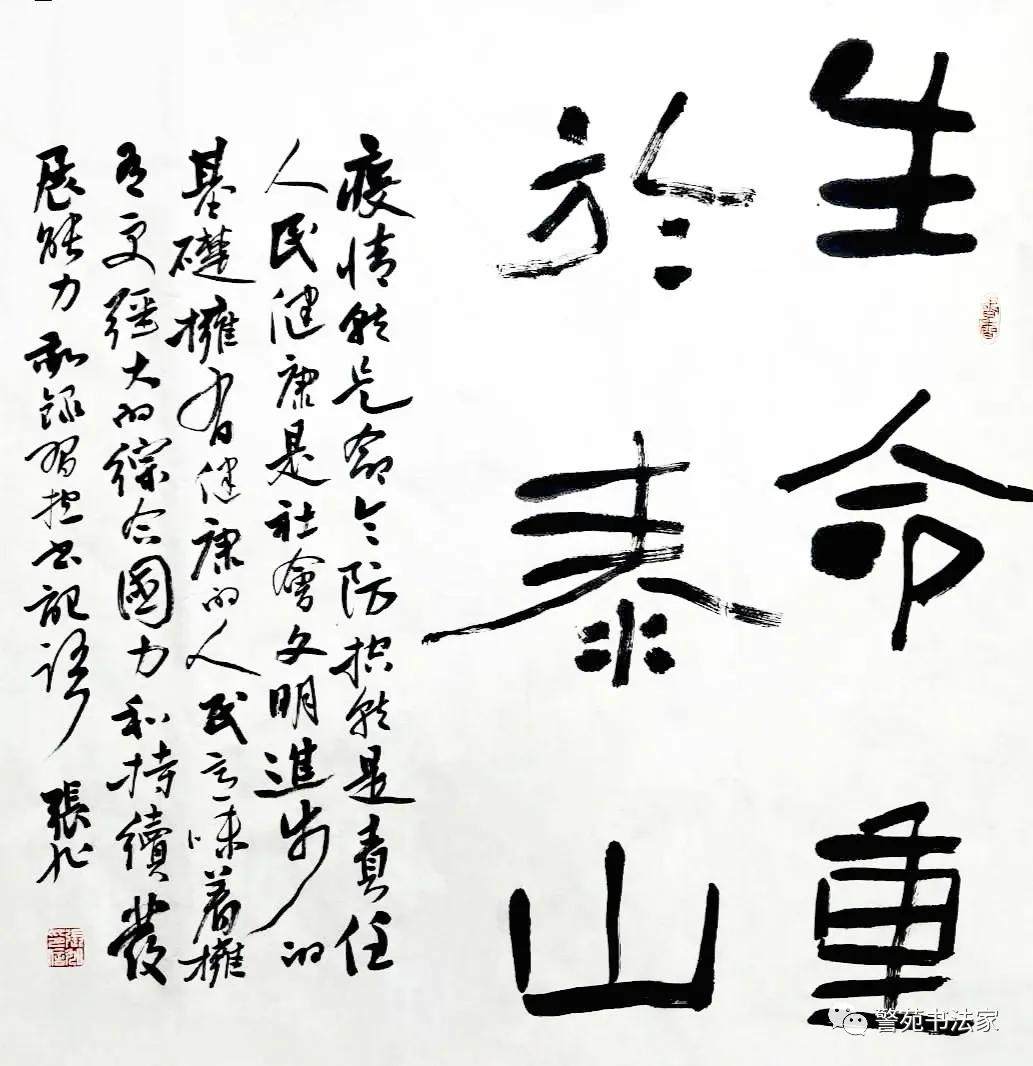 生命重
於泰山
疫情就是命令防控就是責任
人民健康是社會文明進步的
基礎擁有健康的人民意味着擁
有更彊大的綜合國力和持續發
展能力 敬録習總書記語 張
警苑书法家